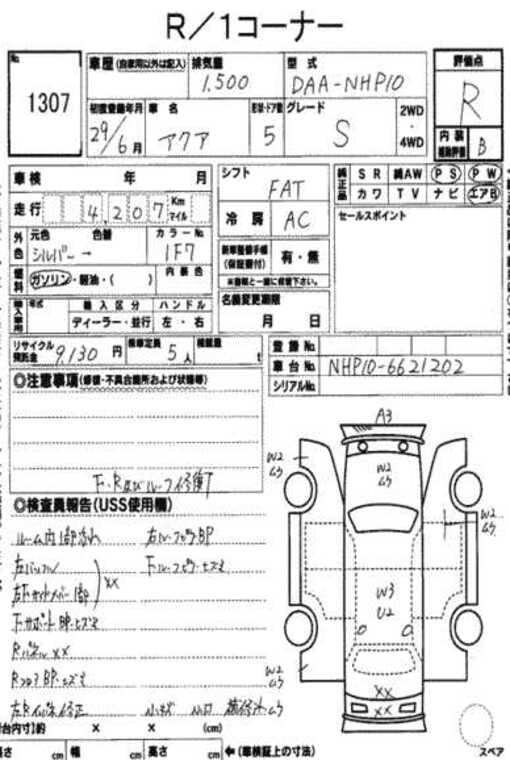 R／1コーナー
No.
1307
車歴 (自家用以外は記入) 排気量 型式
1,500 DAA-NHP10
初度登録年月 車名 形状・ドア数 グレード 2WD ・ 4WD
29/6月 アクア 5 S
評価点
R
内装 補助評価 B
車検 年 月
走行 4,207 Km マイル
外色 元色 色替 カラーNo.
シルバー → 1F7
燃料 ガソリン・軽油・( ) 内装色
輸入車用 年式 輸入区分 ハンドル
ディーラー・並行 左・右
シフト FAT
冷房 AC
新車整備手帳 (保証書付) 有・無
※書類と一緒に保管下さい。
名義変更期限
月 日
純正品 SR 純AW PS PW
カワ TV ナビ エアB
セールスポイント
リサイクル預託金 9,130円 乗車定員 5人 積載量 t
登録No.
車台No. NHP10-6621202
シリアルNo.
◎注意事項 (修復・不具合箇所および状態等)
F・R及びルーフ修復了
◎検査員報告 (USS使用欄)
ルーム内1部汚れ 右ルーフピラーBP
XX
RパネルXX
RフロアBP・ヒズミ
小キズ 小凹
A3
W2
ムラ
W2
ムラ
W2
ムラ
W3
U2
W2
ムラ
XX
XX
台内寸)約 X X (cm)
長さ cm 幅 cm 高さ cm ←(車検証上の寸法)
スペア